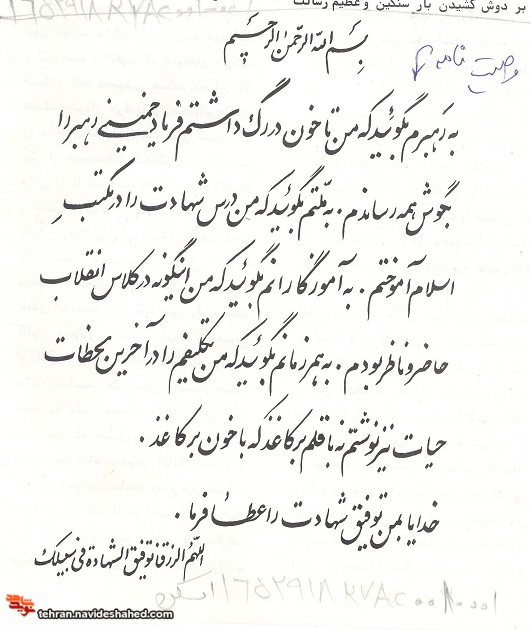 بر دوش کشیدن بار سنگین و عظیم رسالت
بسم الله الرحمن الرحیم
وصیت نامه
به رهبرم بگوئید که من تا خون در رگ داشتم فریاد خمینی رهبر را
بگوش همه رساندم . به ملتم بگوئید که من درس شهادت را در مکتبِ
اسلام آموختم . به آموزگارانم بگوئید که من اینگونه در کلاس انقلاب
حاضر و ناظر بودم . به همرزمانم بگوئید که من تکلیفم را در آخرین لحظات
حیات نیز نوشتم نه با قلم بر کاغذ که با خون بر کاغذ .
خدایا بمن توفیق شهادت را عطا فرما .
اللهم الرزقنا توفیق الشهادة فی سبیلک
tehran.navideshahed.com